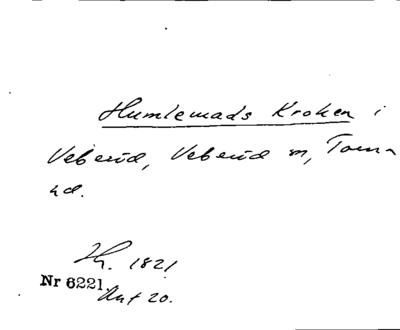 Humlemads Kroken i
Veberöd, Veberöd sn, Torna
hd.
Th. 1821
Nr 6221.
Akt 20.